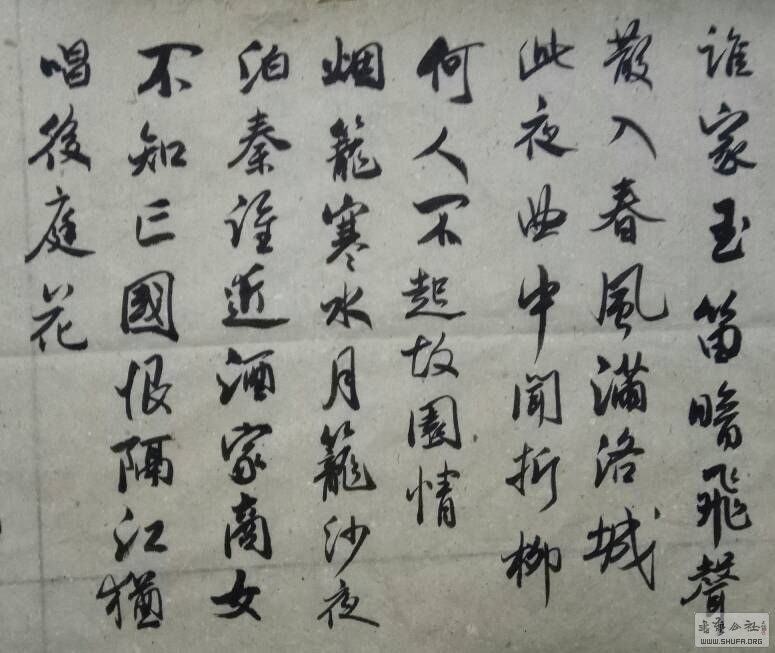 誰家玉笛暗飛聲
散入春風滿洛城
此夜曲中聞折柳
何人不起故園情
烟籠寒水月籠沙夜
泊秦淮近酒家商女
不知亡國恨隔江猶
唱後庭花
WWW.SHUFA.ORG